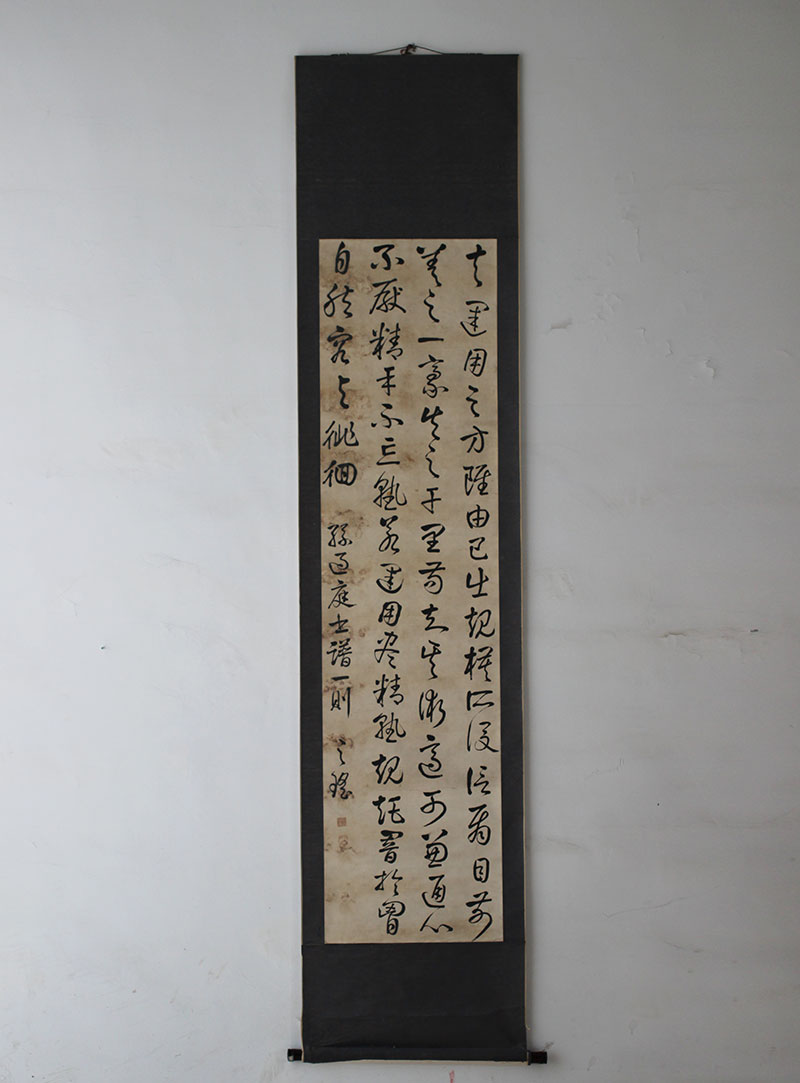 夫運用之方雖由己出規模所設信屬目前
差之一豪失之千里苟知其術適可兼通心
不厭精手不忘熟若運用盡精熟規矩闇於胸
自然容與徘徊 孫過庭書譜一則 之